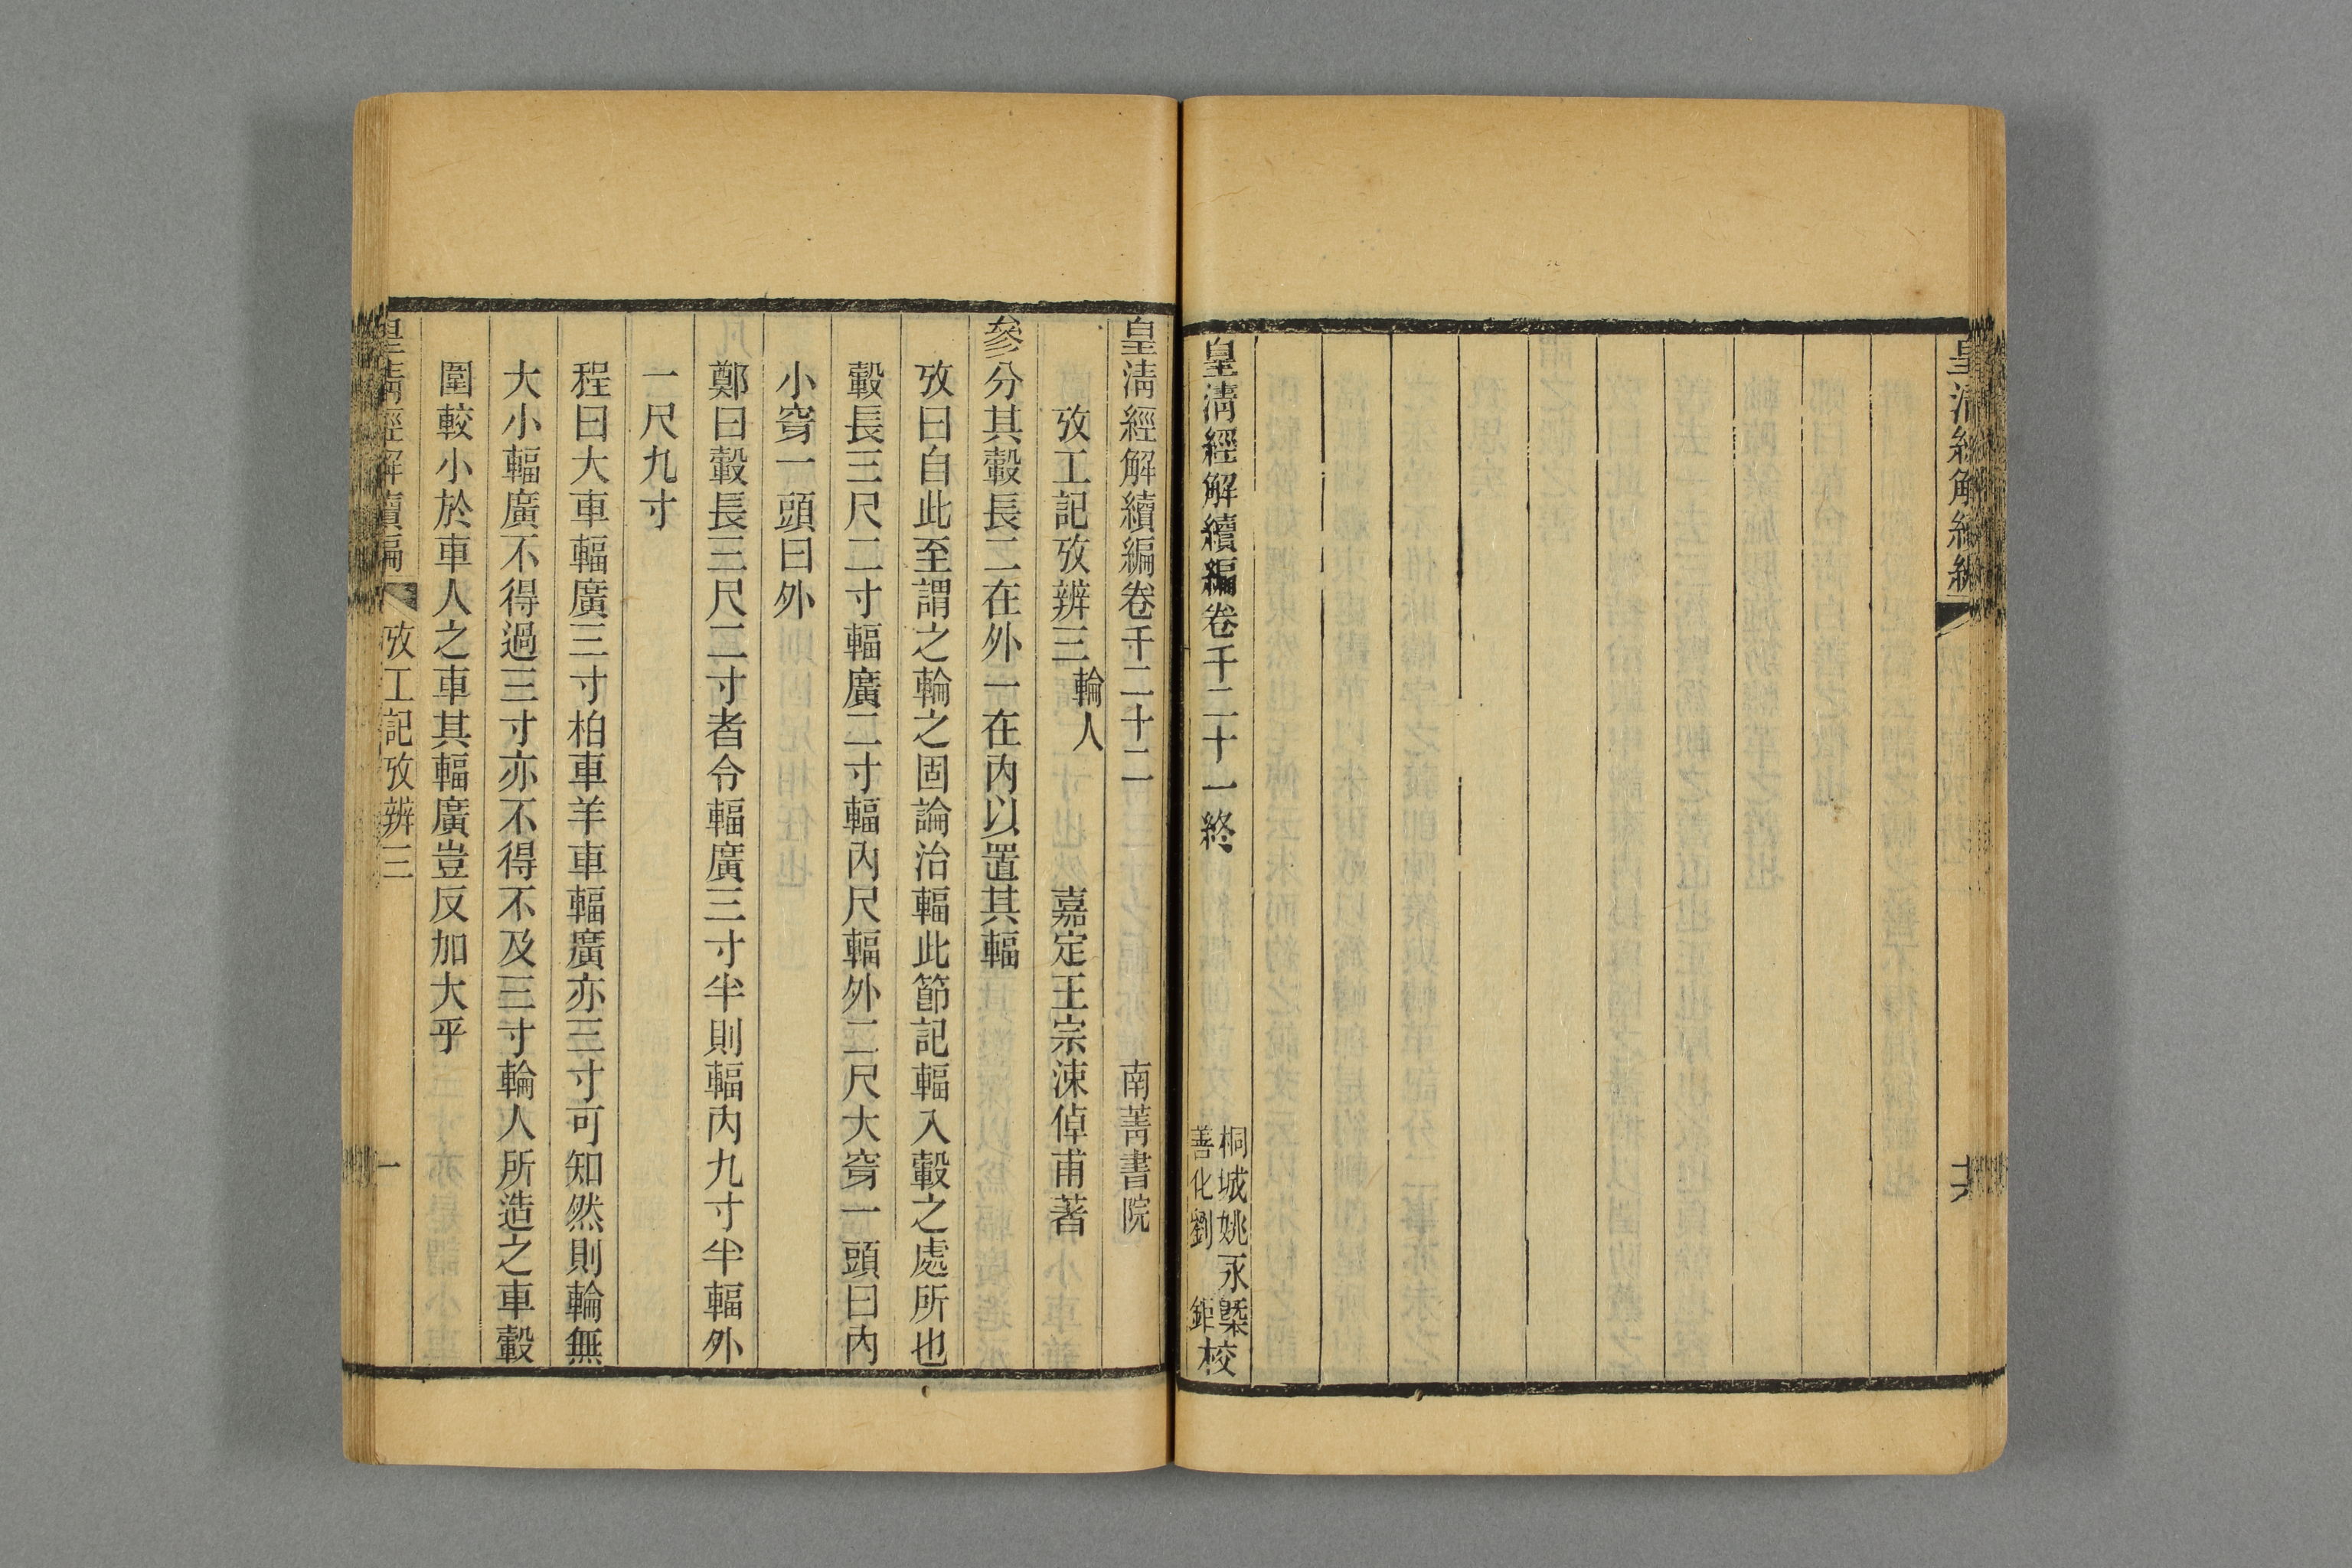 皇清經解續編
皇清經解續編卷千二十一終
桐城姚永槩
善化劉　鉅
校
皇清經解續編卷千二十二　南菁書院
攷工記攷辨三
輪人
嘉定王宗涑倬甫著
參分其轂長二在外一在內以置其輻
攷曰自此至謂之輪之固論治輻此節記輻入轂之處所也
轂長三尺二寸輻廣二寸輻內尺輻外二尺大穿一頭曰內
小穿一頭曰外
鄭曰轂長三尺二寸者令輻廣三寸半則輻內九寸半輻外
一尺九寸
程曰大車輻廣三寸柏車羊車輻廣亦三寸可知然則輪無
大小輻廣不得過三寸亦不得不及三寸輪人所造之車轂
圍較小於車人之車其輻廣豈反加大乎
皇清經解續編
攷工記攷辨三
一